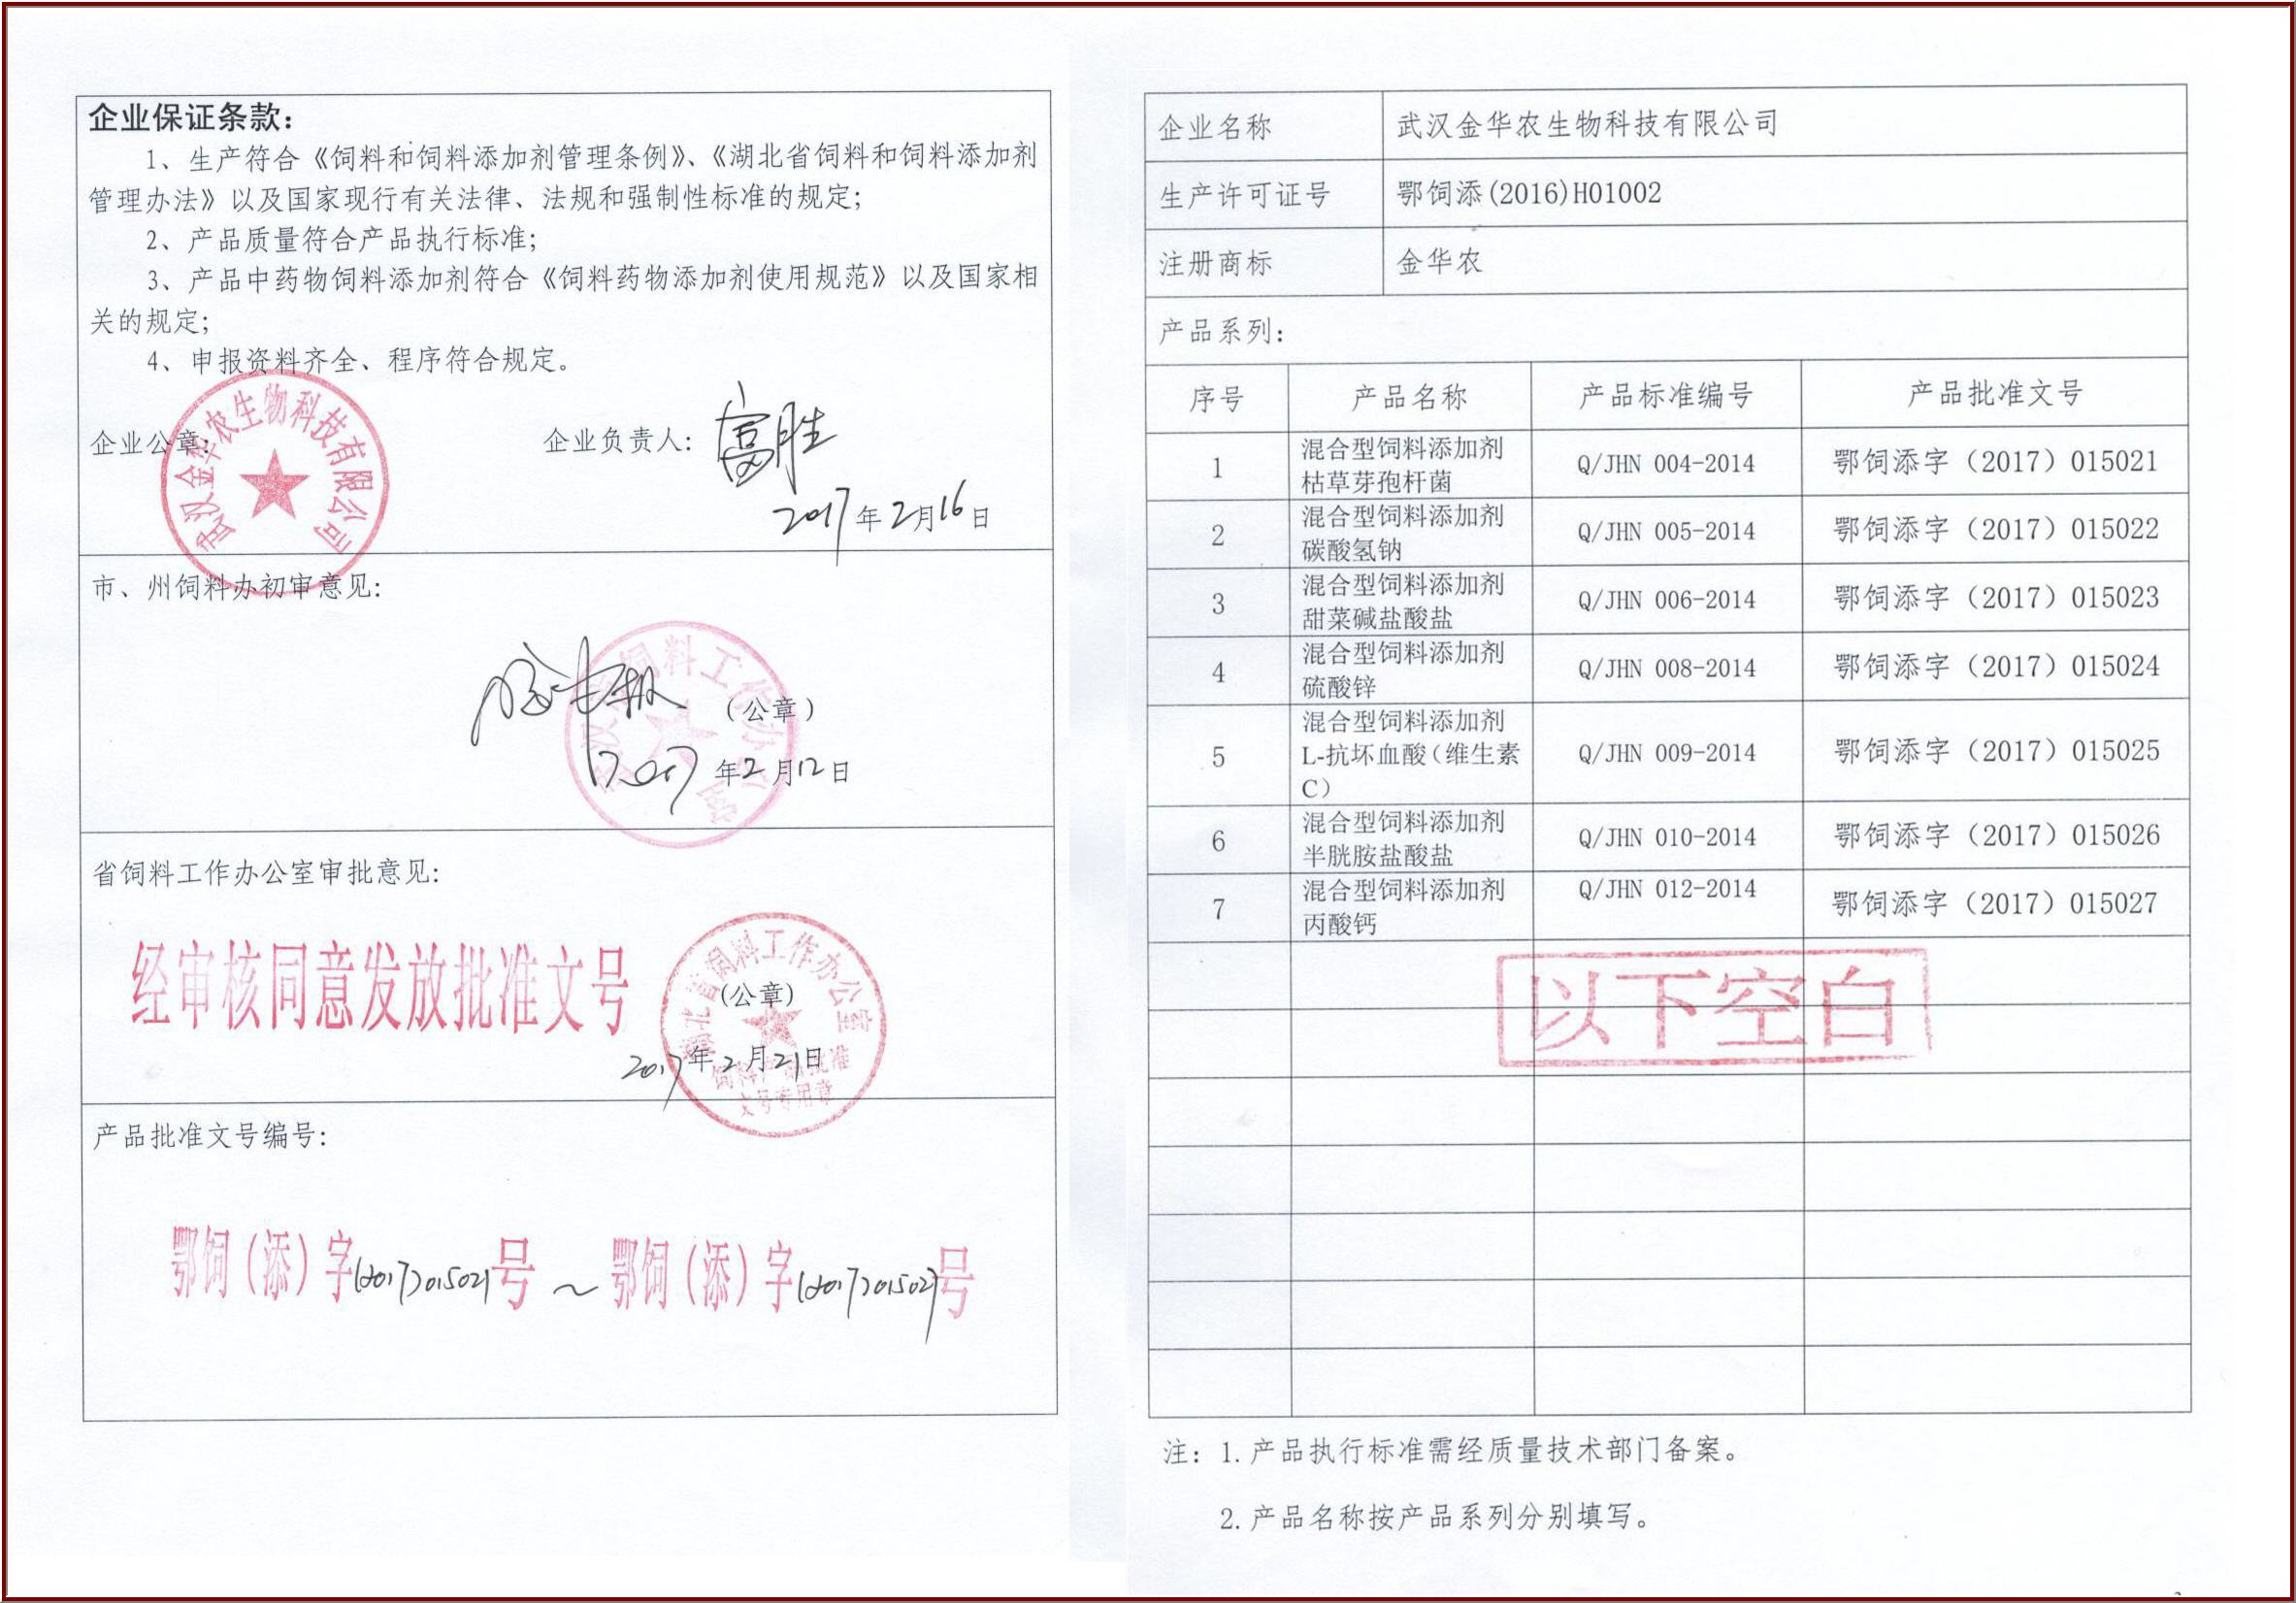 企业保证条款：
1、生产符合《饲料和饲料添加剂管理条例》、《湖北省饲料和饲料添加剂
管理办法》以及国家现行有关法律、法规和强制性标准的规定；
2、产品质量符合产品执行标准；
3、产品中药物饲料添加剂符合《饲料药物添加剂使用规范》以及国家相
关的规定；
4、申报资料齐全、程序符合规定。
企业公章： 企业负责人：
武汉金华农生物科技有限公司
2017年2月16日
市、州饲料办初审意见：
（公章）
2017年2月12日
省饲料工作办公室审批意见：
经审核同意发放批准文号
湖北省饲料工作办公室
（公章）
2017年2月21日
饲料产品批准
文号专用章
产品批准文号编号：
鄂饲（添）字(2017)015021号～鄂饲（添）字(2017)015027号
企业名称 武汉金华农生物科技有限公司
生产许可证号 鄂饲添(2016)H01002
注册商标 金华农
产品系列：
序号 产品名称 产品标准编号 产品批准文号
1 混合型饲料添加剂 Q/JHN 004-2014 鄂饲添字（2017）015021
枯草芽孢杆菌
2 混合型饲料添加剂 Q/JHN 005-2014 鄂饲添字（2017）015022
碳酸氢钠
3 混合型饲料添加剂 Q/JHN 006-2014 鄂饲添字（2017）015023
甜菜碱盐酸盐
4 混合型饲料添加剂 Q/JHN 008-2014 鄂饲添字（2017）015024
硫酸锌
5 混合型饲料添加剂 Q/JHN 009-2014 鄂饲添字（2017）015025
L-抗坏血酸（维生素
C）
6 混合型饲料添加剂 Q/JHN 010-2014 鄂饲添字（2017）015026
半胱胺盐酸盐
7 混合型饲料添加剂 Q/JHN 012-2014 鄂饲添字（2017）015027
丙酸钙
以下空白
注：1.产品执行标准需经质量技术部门备案。
2.产品名称按产品系列分别填写。